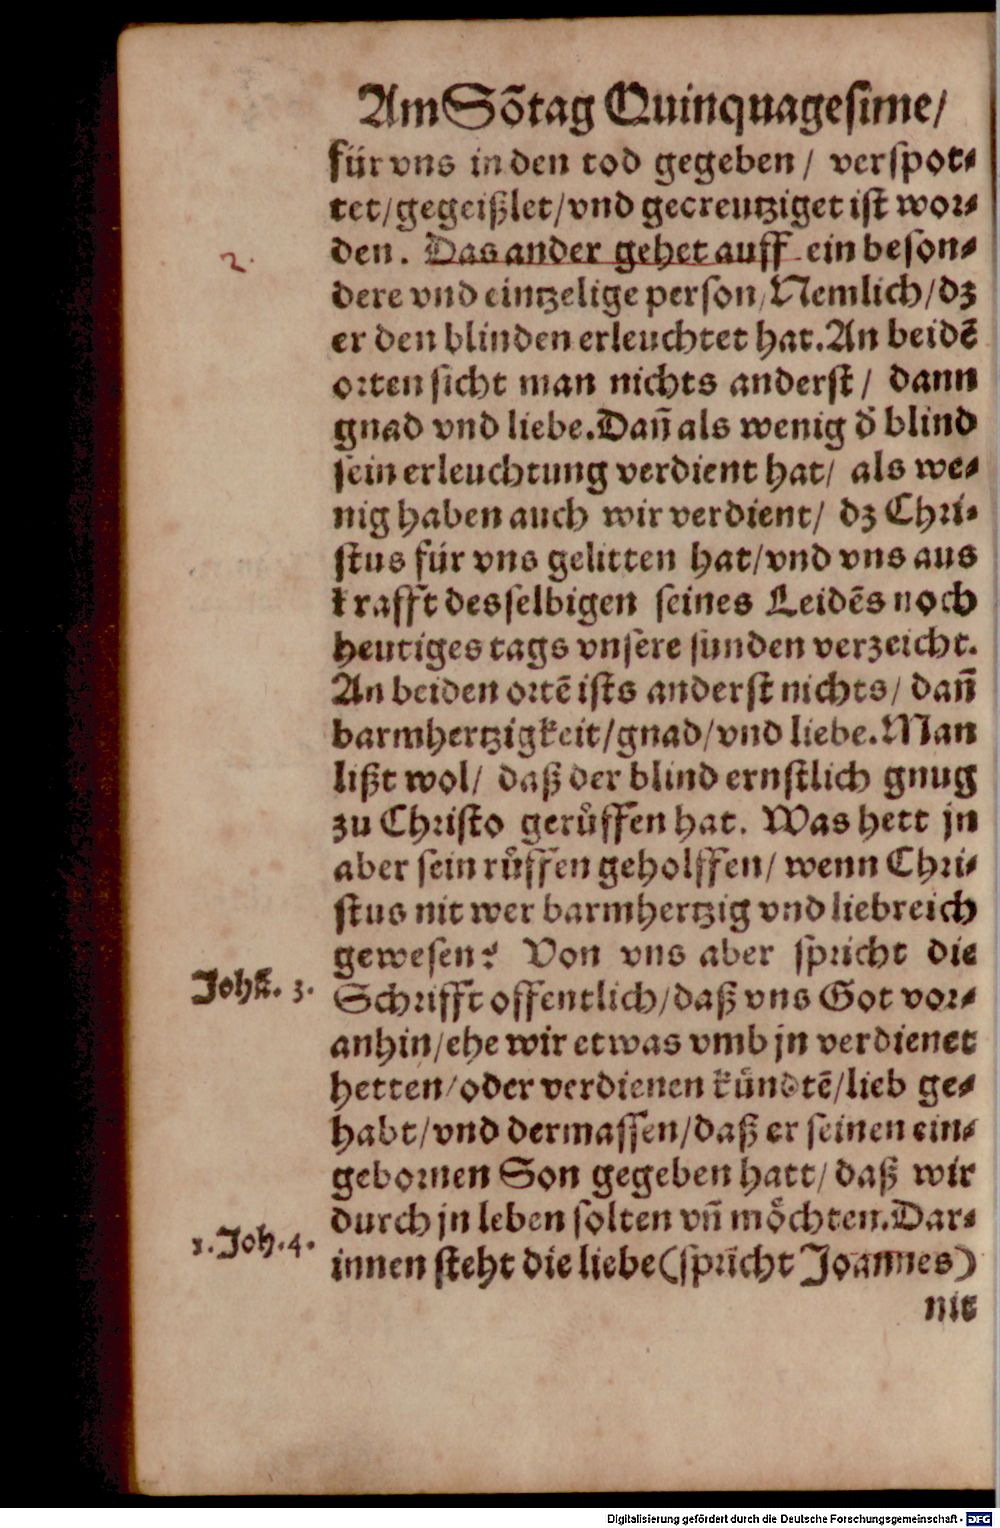 Am Sõtag Quinquagesime/
für vns in den tod gegeben / verspot⸗
tet/gegeißlet/vnd gecreutziget ist wor⸗
2.
den. Das ander gehet auff ein beson⸗
dere vnd eintzelige person/Nemlich/dz
er den blinden erleuchtet hat. An beidẽ
orten sicht man nichts anderst / dann
gnad vnd liebe. Dañ als wenig d̾ blind
sein erleuchtung verdient hat/ als we⸗
nig haben auch wir verdient/ dz Chri⸗
stus für vns gelitten hat/vnd vns aus
krafft desselbigen seines Leidẽs noch
heutiges tags vnsere sunden verzeicht.
An beiden ortẽ ists anderst nichts/ dañ
barmhertzigkeit/gnad/vnd liebe. Man
lißt wol/ daß der blind ernstlich gnug
zu Christo gerůffen hat. Was hett jn
aber sein růffen geholffen/ wenn Chri⸗
stus nit wer barmhertzig vnd liebreich
gewesen? Von vns aber spricht die
Johã. 3.
Schrifft offentlich/daß vns Got vor⸗
anhin/ehe wir etwas vmb jn verdienet
hetten/oder verdienen kündtẽ/lieb ge⸗
habt/vnd dermassen/daß er seinen ein⸗
gebornen Son gegeben hatt/daß wir
durch jn leben solten vñ möchten. Dar⸗
1. Joh. 4.
innen steht die liebe (spricht Joannes)
nit
Digitalisierung gefördert durch die Deutsche Forschungsgemeinschaft - DFG